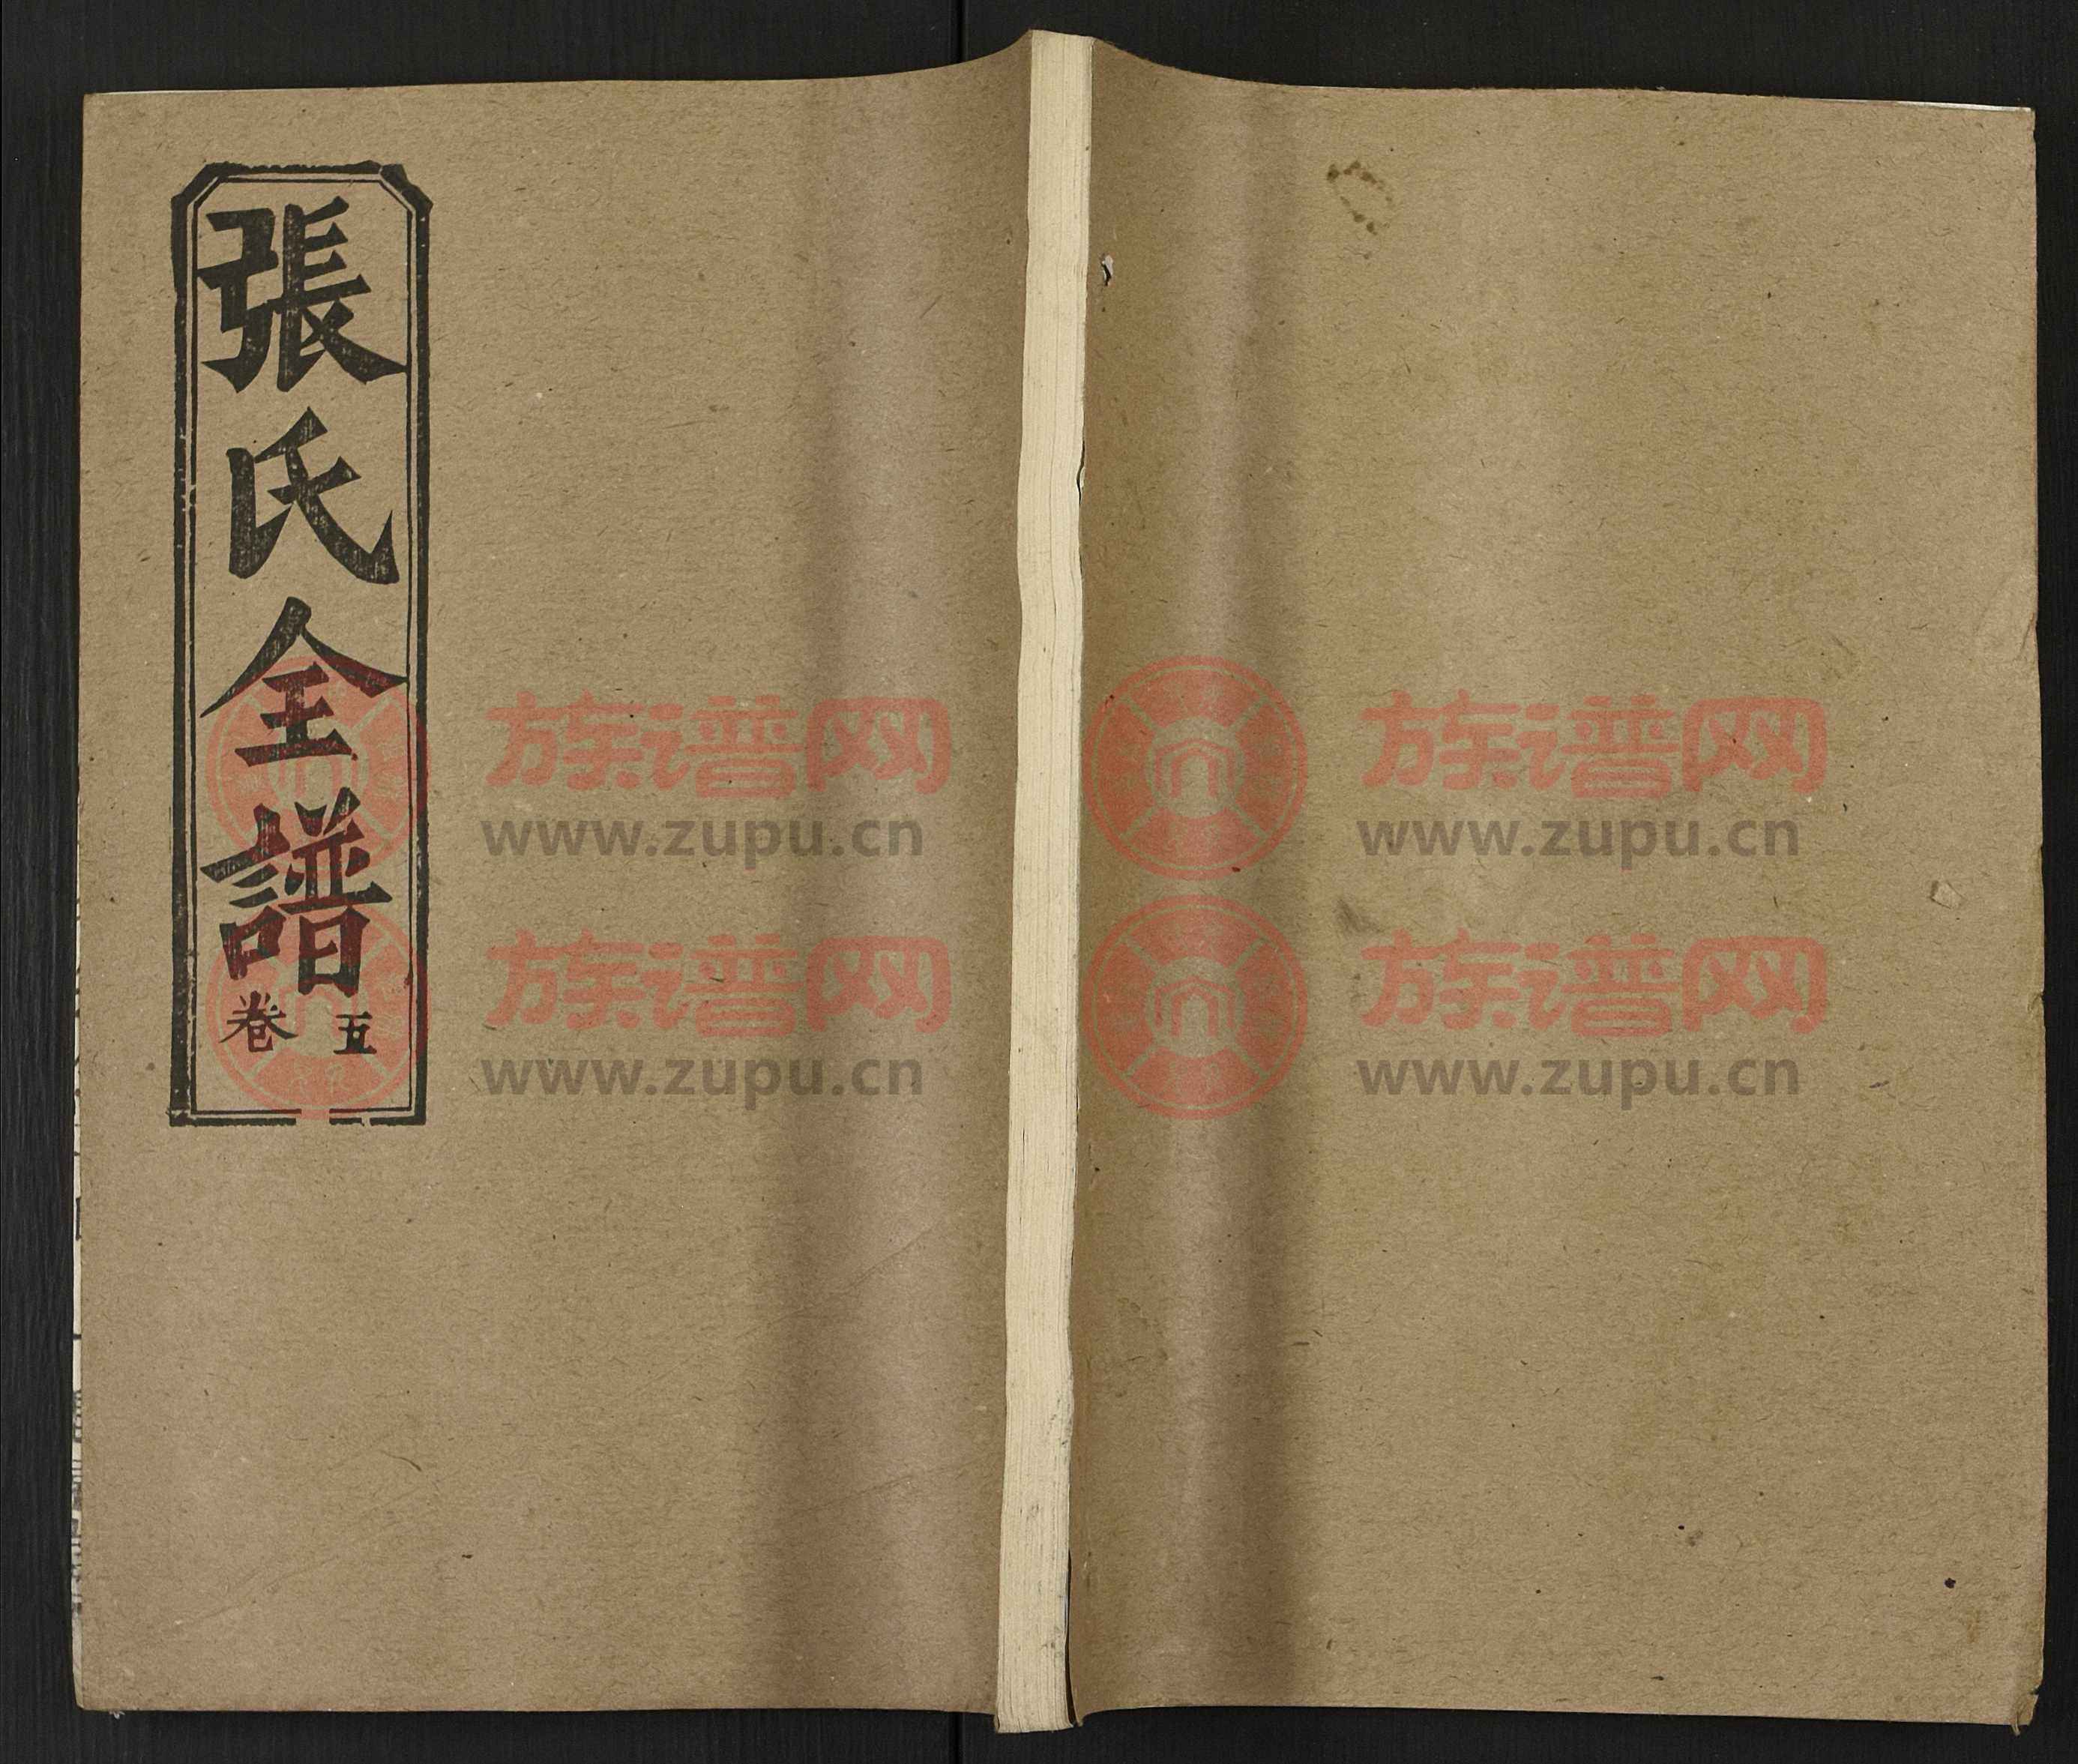 張氏全譜
卷五
族谱网
www.zupu.cn
族谱网
www.zupu.cn
族谱网
www.zupu.cn
族谱网
www.zupu.cn